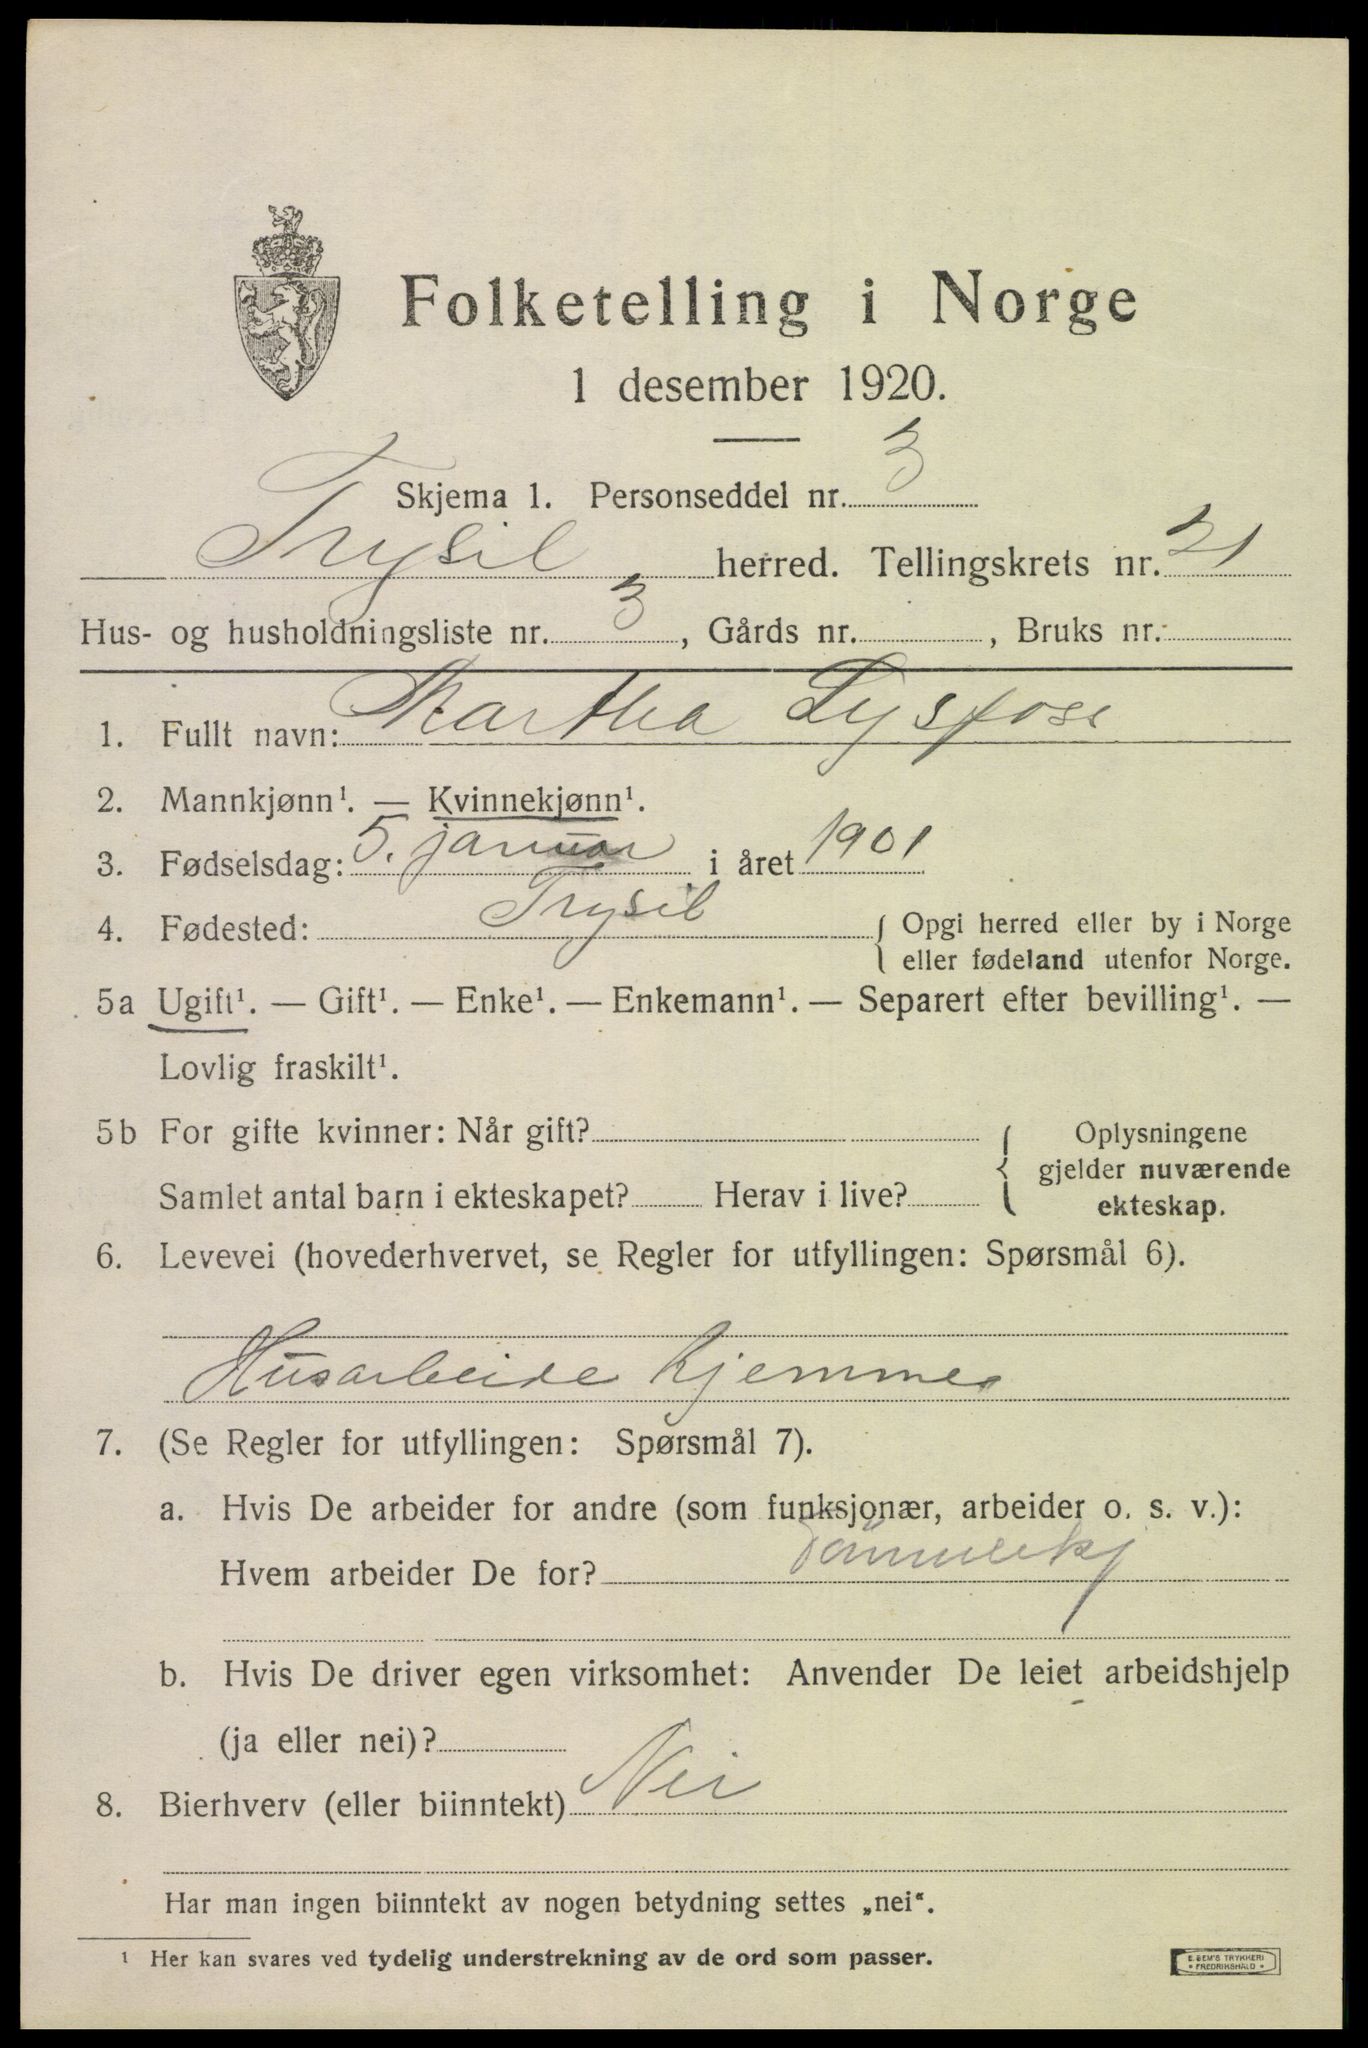 Folketelling i Norge
1 desember 1920.
Skjema 1. Personseddel nr. 3
Trysil herred. Tellingskrets nr. 21
Hus- og husholdningsliste nr. 3, Gårds nr. , Bruks nr.
1. Fullt navn: Martha Lysfoss
2. Mannkjønn¹. — Kvinnekjønn¹.
3. Fødselsdag: 5. januar i året 1901
4. Fødested: Trysil { Opgi herred eller by i Norge
eller fødeland utenfor Norge.
5a Ugift¹. — Gift¹. — Enke¹. — Enkemann¹. — Separert efter bevilling¹. —
Lovlig fraskilt¹.
5b For gifte kvinner: Når gift? { Oplysningene
gjelder nuværende
Samlet antal barn i ekteskapet? Herav i live? ekteskap.
6. Levevei (hovederhvervet, se Regler for utfyllingen: Spørsmål 6).
Husarbeide hjemme
7. (Se Regler for utfyllingen: Spørsmål 7).
a. Hvis De arbeider for andre (som funksjonær, arbeider o. s. v.):
Hvem arbeider De for?
b. Hvis De driver egen virksomhet: Anvender De leiet arbeidshjelp
(ja eller nei)?
8. Bierhverv (eller biinntekt) Nei
Har man ingen biinntekt av nogen betydning settes „nei“.
¹ Her kan svares ved tydelig understrekning av de ord som passer.
E. SEM'S TRYKKERI
• FREDRIKSHALD •